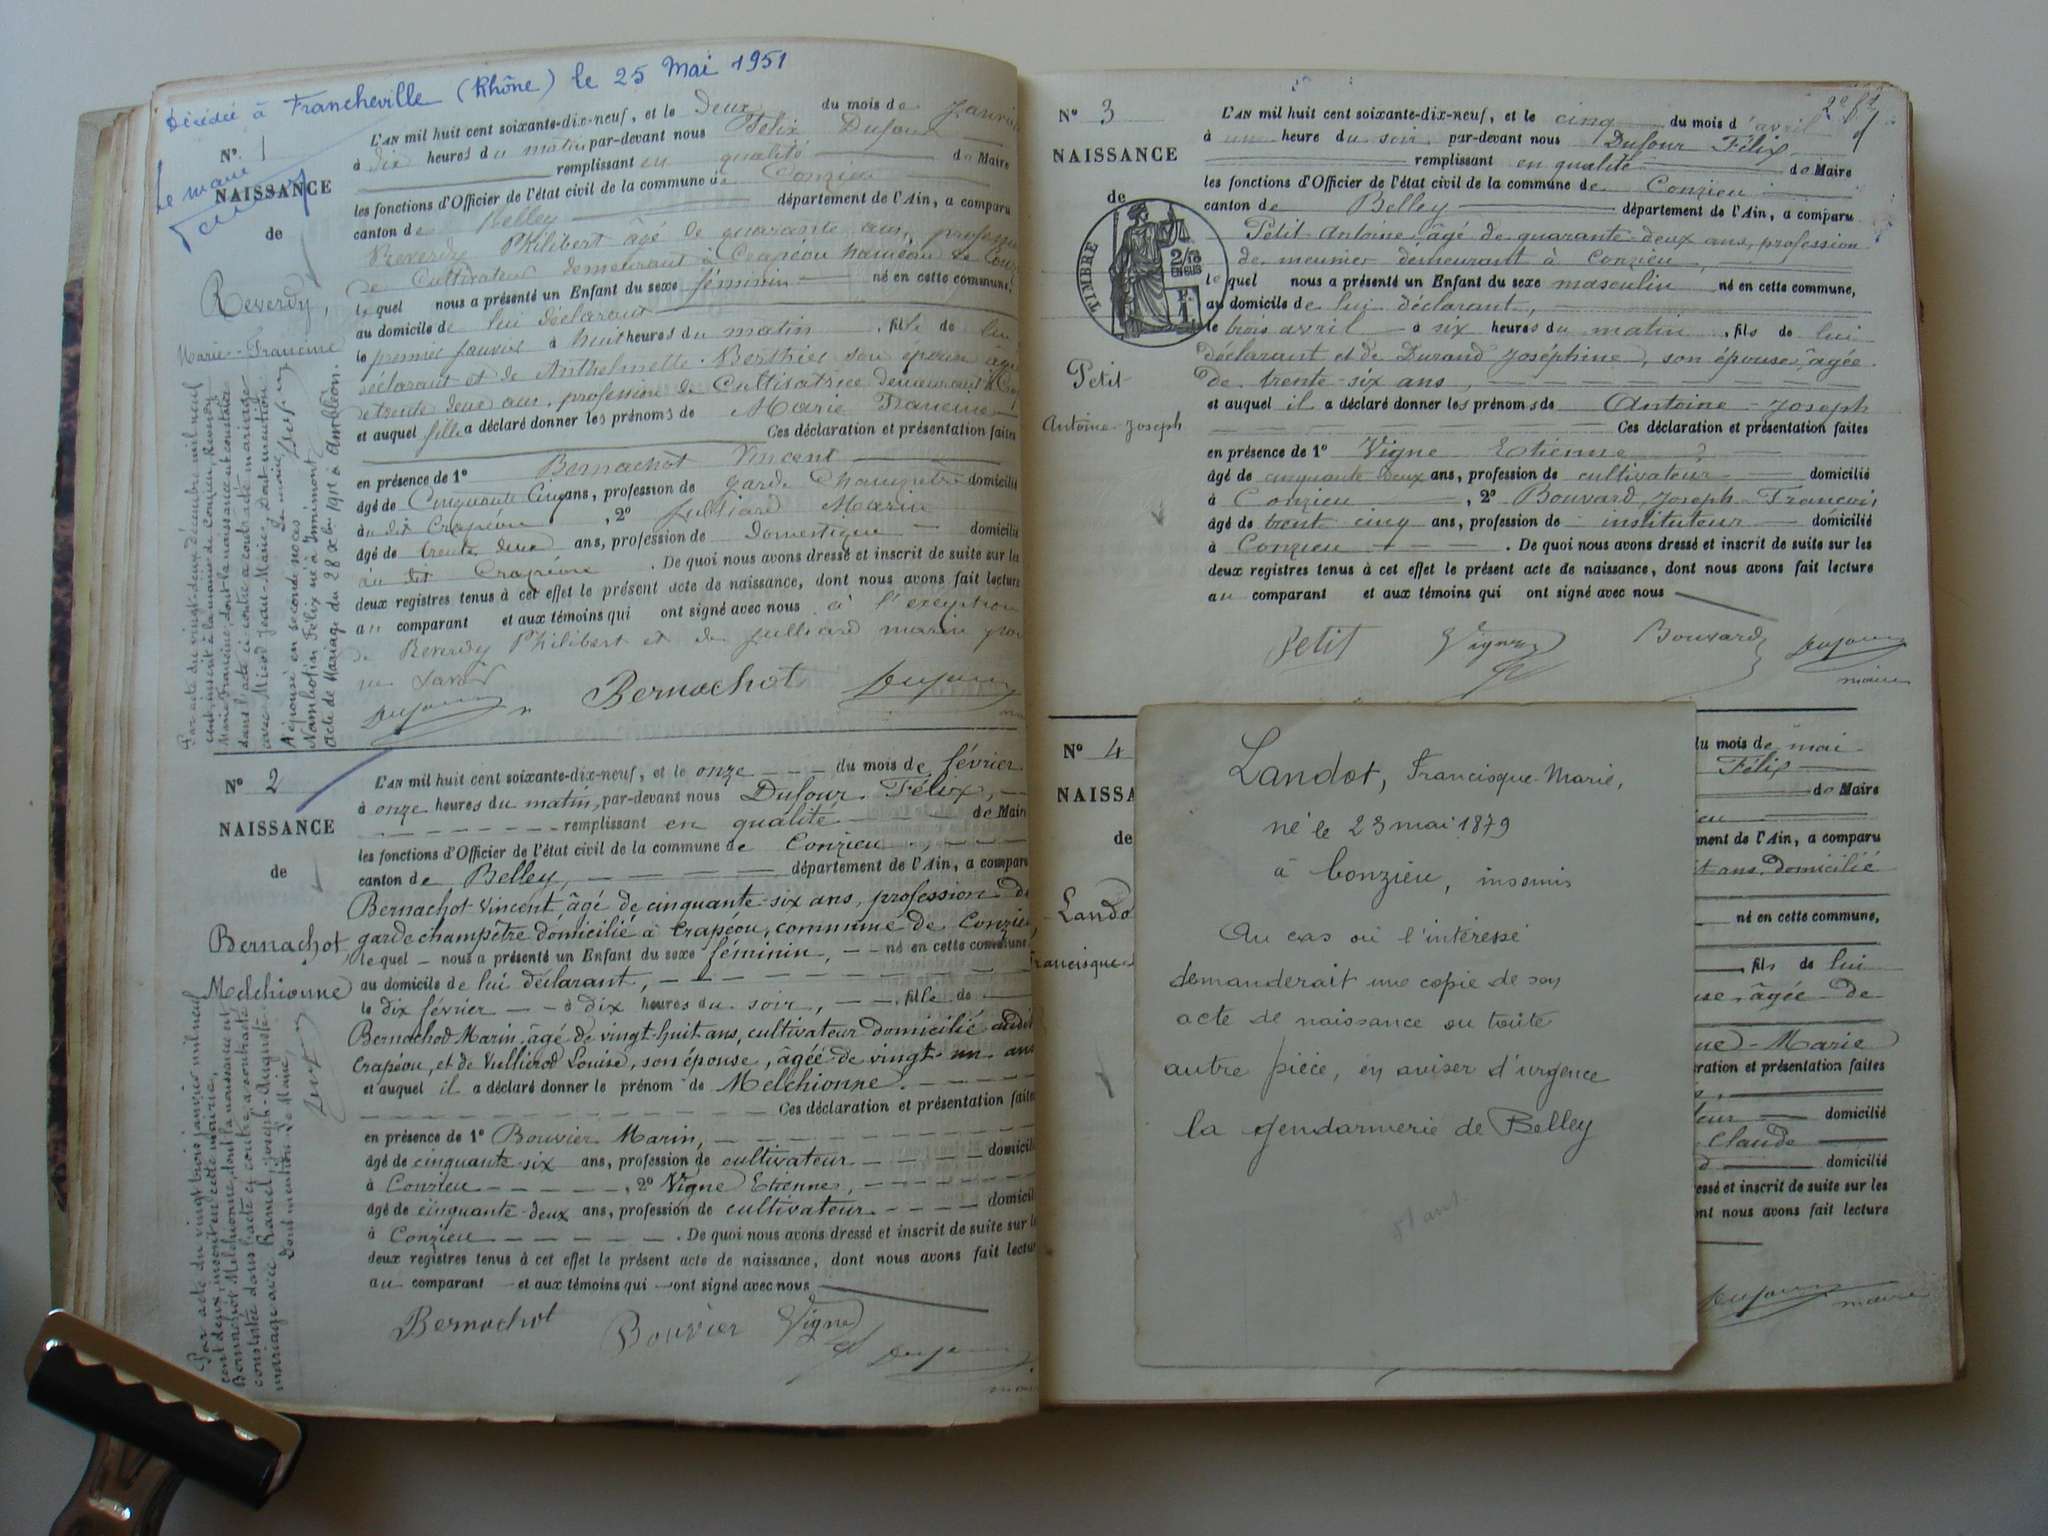 Décédée à Francheville (Rhône) le 25 Mai 1951
Le maire
N° 1
NAISSANCE
de
Reverdy,
Marie-Francine
L'AN mil huit cent soixante-dix-neuf, et le Deux du mois de Janvier
à dix heures du matin par-devant nous Félix Dufour
remplissant en qualité de Maire
les fonctions d'Officier de l'état civil de la commune de Conzieu
canton de Belley département de l'Ain, a comparu
Reverdy Philibert âgé de quarante ans, profession
de Cultivateur demeurant à Crapéou hameau de
le quel nous a présenté un Enfant du sexe féminin né en cette commune,
au domicile de lui déclarant
le premier Janvier à huit heures du matin, fille de lui
déclarant et de Anthelmette Berthier son épouse âgée
de trente deux ans, profession de Cultivatrice demeurant à
et auquel fille a déclaré donner les prénoms de Marie Francine
Ces déclaration et présentation faites
en présence de 1° Bernachot Vincent
âgé de Cinquante Cinq ans, profession de garde Champêtre domicilié
au dit Crapéou, 2° Julliard Marin
âgé de trente deux ans, profession de Domestique domicilié
au dit Crapéou. De quoi nous avons dressé et inscrit de suite sur les
deux registres tenus à cet effet le présent acte de naissance, dont nous avons fait lecture
au comparant et aux témoins qui ont signé avec nous à l'exception
de Reverdy Philibert et de Julliard Marin pour
ne savoir
Dufour Bernachot Dufour
Par acte du vingt-deux décembre mil neuf
cent, inscrit à la mairie de Conzieu, Reverdy
Marie Francine, dont la naissance est constatée
dans l'acte ci-contre, a contracté mariage
avec Micod Jean-Marie. Dont mention.
Le maire,
A épousé en secondes noces
Nambotin Félix né à Prémimont
acte de Mariage du 28 Xbre 1912 à Ambléon.
N° 2
NAISSANCE
de
Bernachot,
Melchionne
L'AN mil huit cent soixante-dix-neuf, et le onze du mois de février
à onze heures du matin, par-devant nous Dufour Félix,
remplissant en qualité de Maire
les fonctions d'Officier de l'état civil de la commune de Conzieu,
canton de Belley, département de l'Ain, a comparu
Bernachot Vincent, âgé de cinquante-six ans, profession de
garde champêtre domicilié à Crapéou, commune de Conzieu,
le quel nous a présenté un Enfant du sexe féminin, né en cette commune
au domicile de lui déclarant,
le dix février à dix heures du soir, fille de
Bernachot Marin, âgé de vingt-huit ans, cultivateur domicilié audit
Crapéou, et de Vullierod Louise, son épouse, âgée de vingt-un ans
et auquel il a déclaré donner le prénom de Melchionne.
Ces déclaration et présentation faites
en présence de 1° Bouvier Marin,
âgé de cinquante-six ans, profession de cultivateur domicilié
à Conzieu, 2° Vigne Etienne,
âgé de cinquante-deux ans, profession de cultivateur domicilié
à Conzieu. De quoi nous avons dressé et inscrit de suite sur les
deux registres tenus à cet effet le présent acte de naissance, dont nous avons fait lecture
au comparant et aux témoins qui ont signé avec nous
Bernachot Bouvier Vigne Dufour
maire
Par acte du vingt trois janvier mil neuf
cent deux, inscrit en cette mairie,
Bernachot Melchionne, dont la naissance est
constatée dans l'acte ci-contre, a contracté
mariage avec Ramel, Joseph-Auguste.
Dont mention. Le Maire,
N° 3
NAISSANCE
de
TIMBRE
2/10 EN SUS
Petit
Antoine-Joseph
L'AN mil huit cent soixante-dix-neuf, et le cinq du mois d'avril
à une heure du soir par-devant nous Dufour Félix
remplissant en qualité de Maire
les fonctions d'Officier de l'état civil de la commune de Conzieu
canton de Belley département de l'Ain, a comparu
Petit Antoine, âgé de quarante-deux ans, profession
de meunier demeurant à Conzieu,
le quel nous a présenté un Enfant du sexe masculin né en cette commune,
au domicile de lui déclarant,
le trois avril à six heures du matin, fils de lui
déclarant et de Durand Joséphine, son épouse, âgée
de trente-six ans,
et auquel il a déclaré donner les prénoms de Antoine-Joseph
Ces déclaration et présentation faites
en présence de 1° Vigne Etienne
âgé de cinquante deux ans, profession de cultivateur domicilié
à Conzieu, 2° Bouvard, Joseph-François,
âgé de trent cinq ans, profession de instituteur domicilié
à Conzieu. De quoi nous avons dressé et inscrit de suite sur les
deux registres tenus à cet effet le présent acte de naissance, dont nous avons fait lecture
au comparant et aux témoins qui ont signé avec nous
Petit Vigne Bouvard Dufour
maire
N° 4
NAISSA
de
Lando
rancisque
Landot, Francisque-Marie,
né le 23 mai 1879
à Conzieu, insoumis
Au cas où l'intéressé
demanderait une copie de son
acte de naissance ou toute
autre pièce, en aviser d'urgence
la gendarmerie de Belley
du mois de mai
Félix
de Maire
ment de l'Ain, a comparu
ans, domicilié
né en cette commune,
, fils de lui
use, âgée de
ue-Marie
ration et présentation faites
teur domicilié
Claude
domicilié
essé et inscrit de suite sur les
nt nous avons fait lecture
Dufour
maire